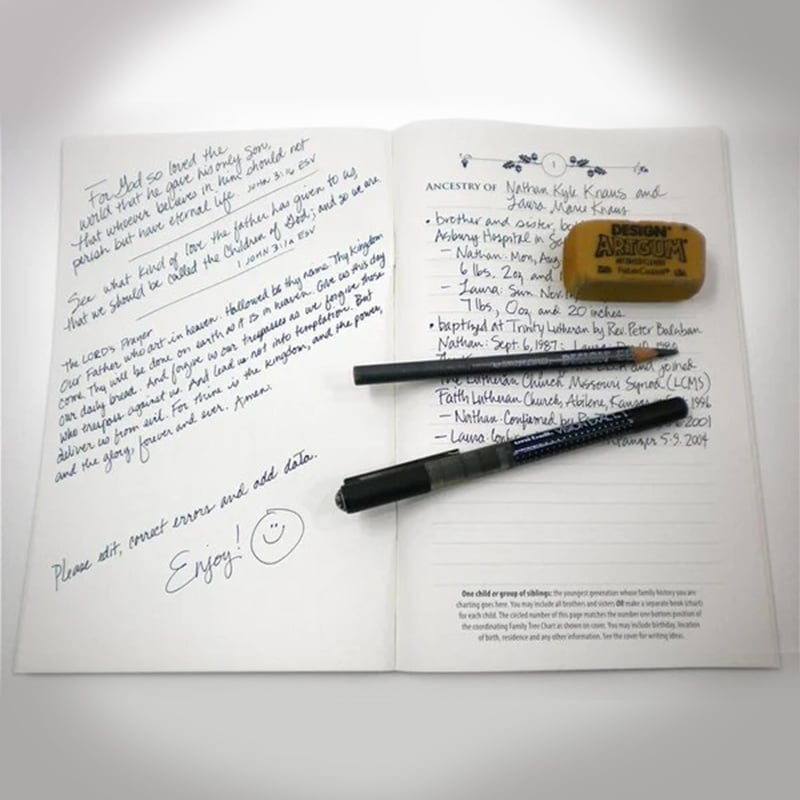 For God so loved the
world that he gave his only Son,
that whoever believes in him should not
perish but have eternal life. JOHN 3:16 ESV
See what kind of love the father has given to us
that we should be called the children of God; and so we are.
1 JOHN 3:1a ESV
The LORD's Prayer
Our Father who art in heaven. Hallowed be thy name. Thy Kingdom
come Thy will be done on earth as it is in heaven. Give us this day
our daily bread. And forgive us our trespasses as we forgive those
who trespass against us. And lead us not into temptation. But
deliver us from evil. For thine is the kingdom, and the power,
and the glory, forever and ever. Amen.
Please edit, correct errors and add data.
Enjoy!
1
ANCESTRY OF Nathan Kyle Knaus and
Laura Marie Knaus
• brother and sister, bo
Asbury Hospital in Sa
– Nathan: Mon, Aug
6 lbs. 2oz and
– Laura: Sun. Nov.
7 lbs, 0oz and 20 inches.
• baptized at Trinity Lutheran by Rev. Peter
Nathan: Sept. 6, 1987;
and joined
The Lutheran Church Missouri Synod (LCMS)
Faith Lutheran Church, Abilene, Kansas 1996
– Nathan: Confirmed by 2001
– Laura: 5-9-2004
DESIGN
ARTGUM
DESIGN
One child or group of siblings: the youngest generation whose family history you are
charting goes here. You may include all brothers and sisters OR make a separate book (chart)
for each child. The circled number of this page matches the number one bottom position of
the coordinating Family Tree Chart as shown on cover. You may include birthday, location
of birth, residence and any other information. See the cover for writing ideas.